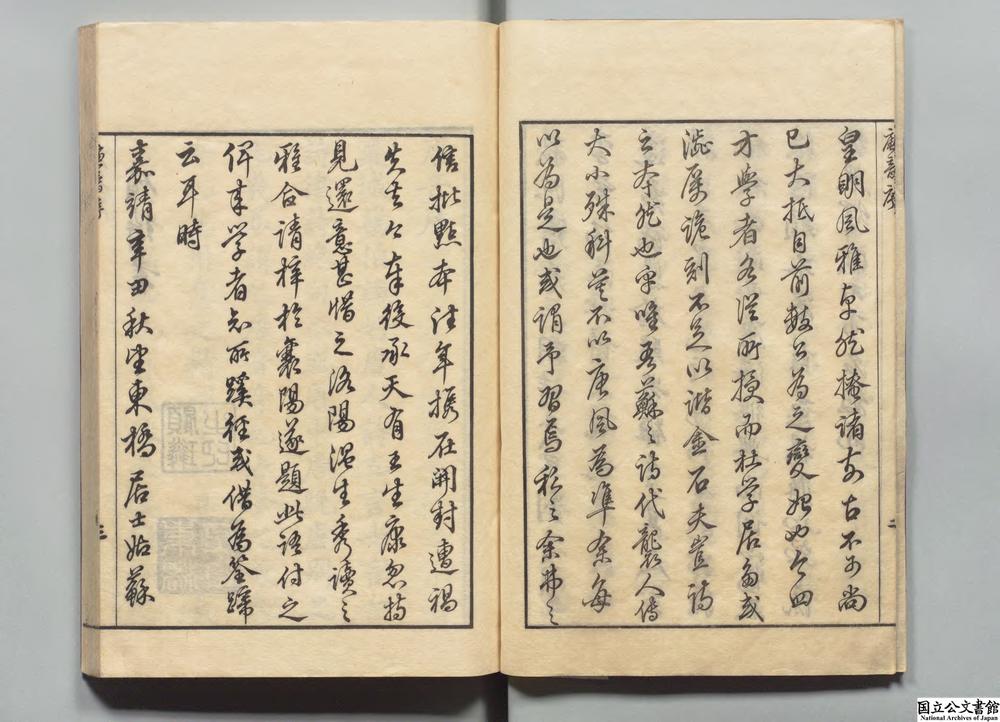 唐音序
二
皇明風雅卓然掩諸前古不可尚
已大抵目前數公為之變始也今四
方學者各從所授而杜學居多或
澁厲詭刻不足以諧金石夫豈詩
之本然也乎唯吾蘇之詩代襲人傳
大小殊科莫不以唐風為準余每
以為是也或謂予習焉私之余弗之
信批點本往年携在開封遭禍
失去今奉役承天有王生康忽持
見還意甚惜之洛陽溫生秀讀之
雅合請梓於襄陽遂題此語付之
俾来学者知所蹊徑或借為筌蹄
云耳時
嘉靖辛丑秋望東橋居士姑蘇
三
国立公文書館
National Archives of Japan